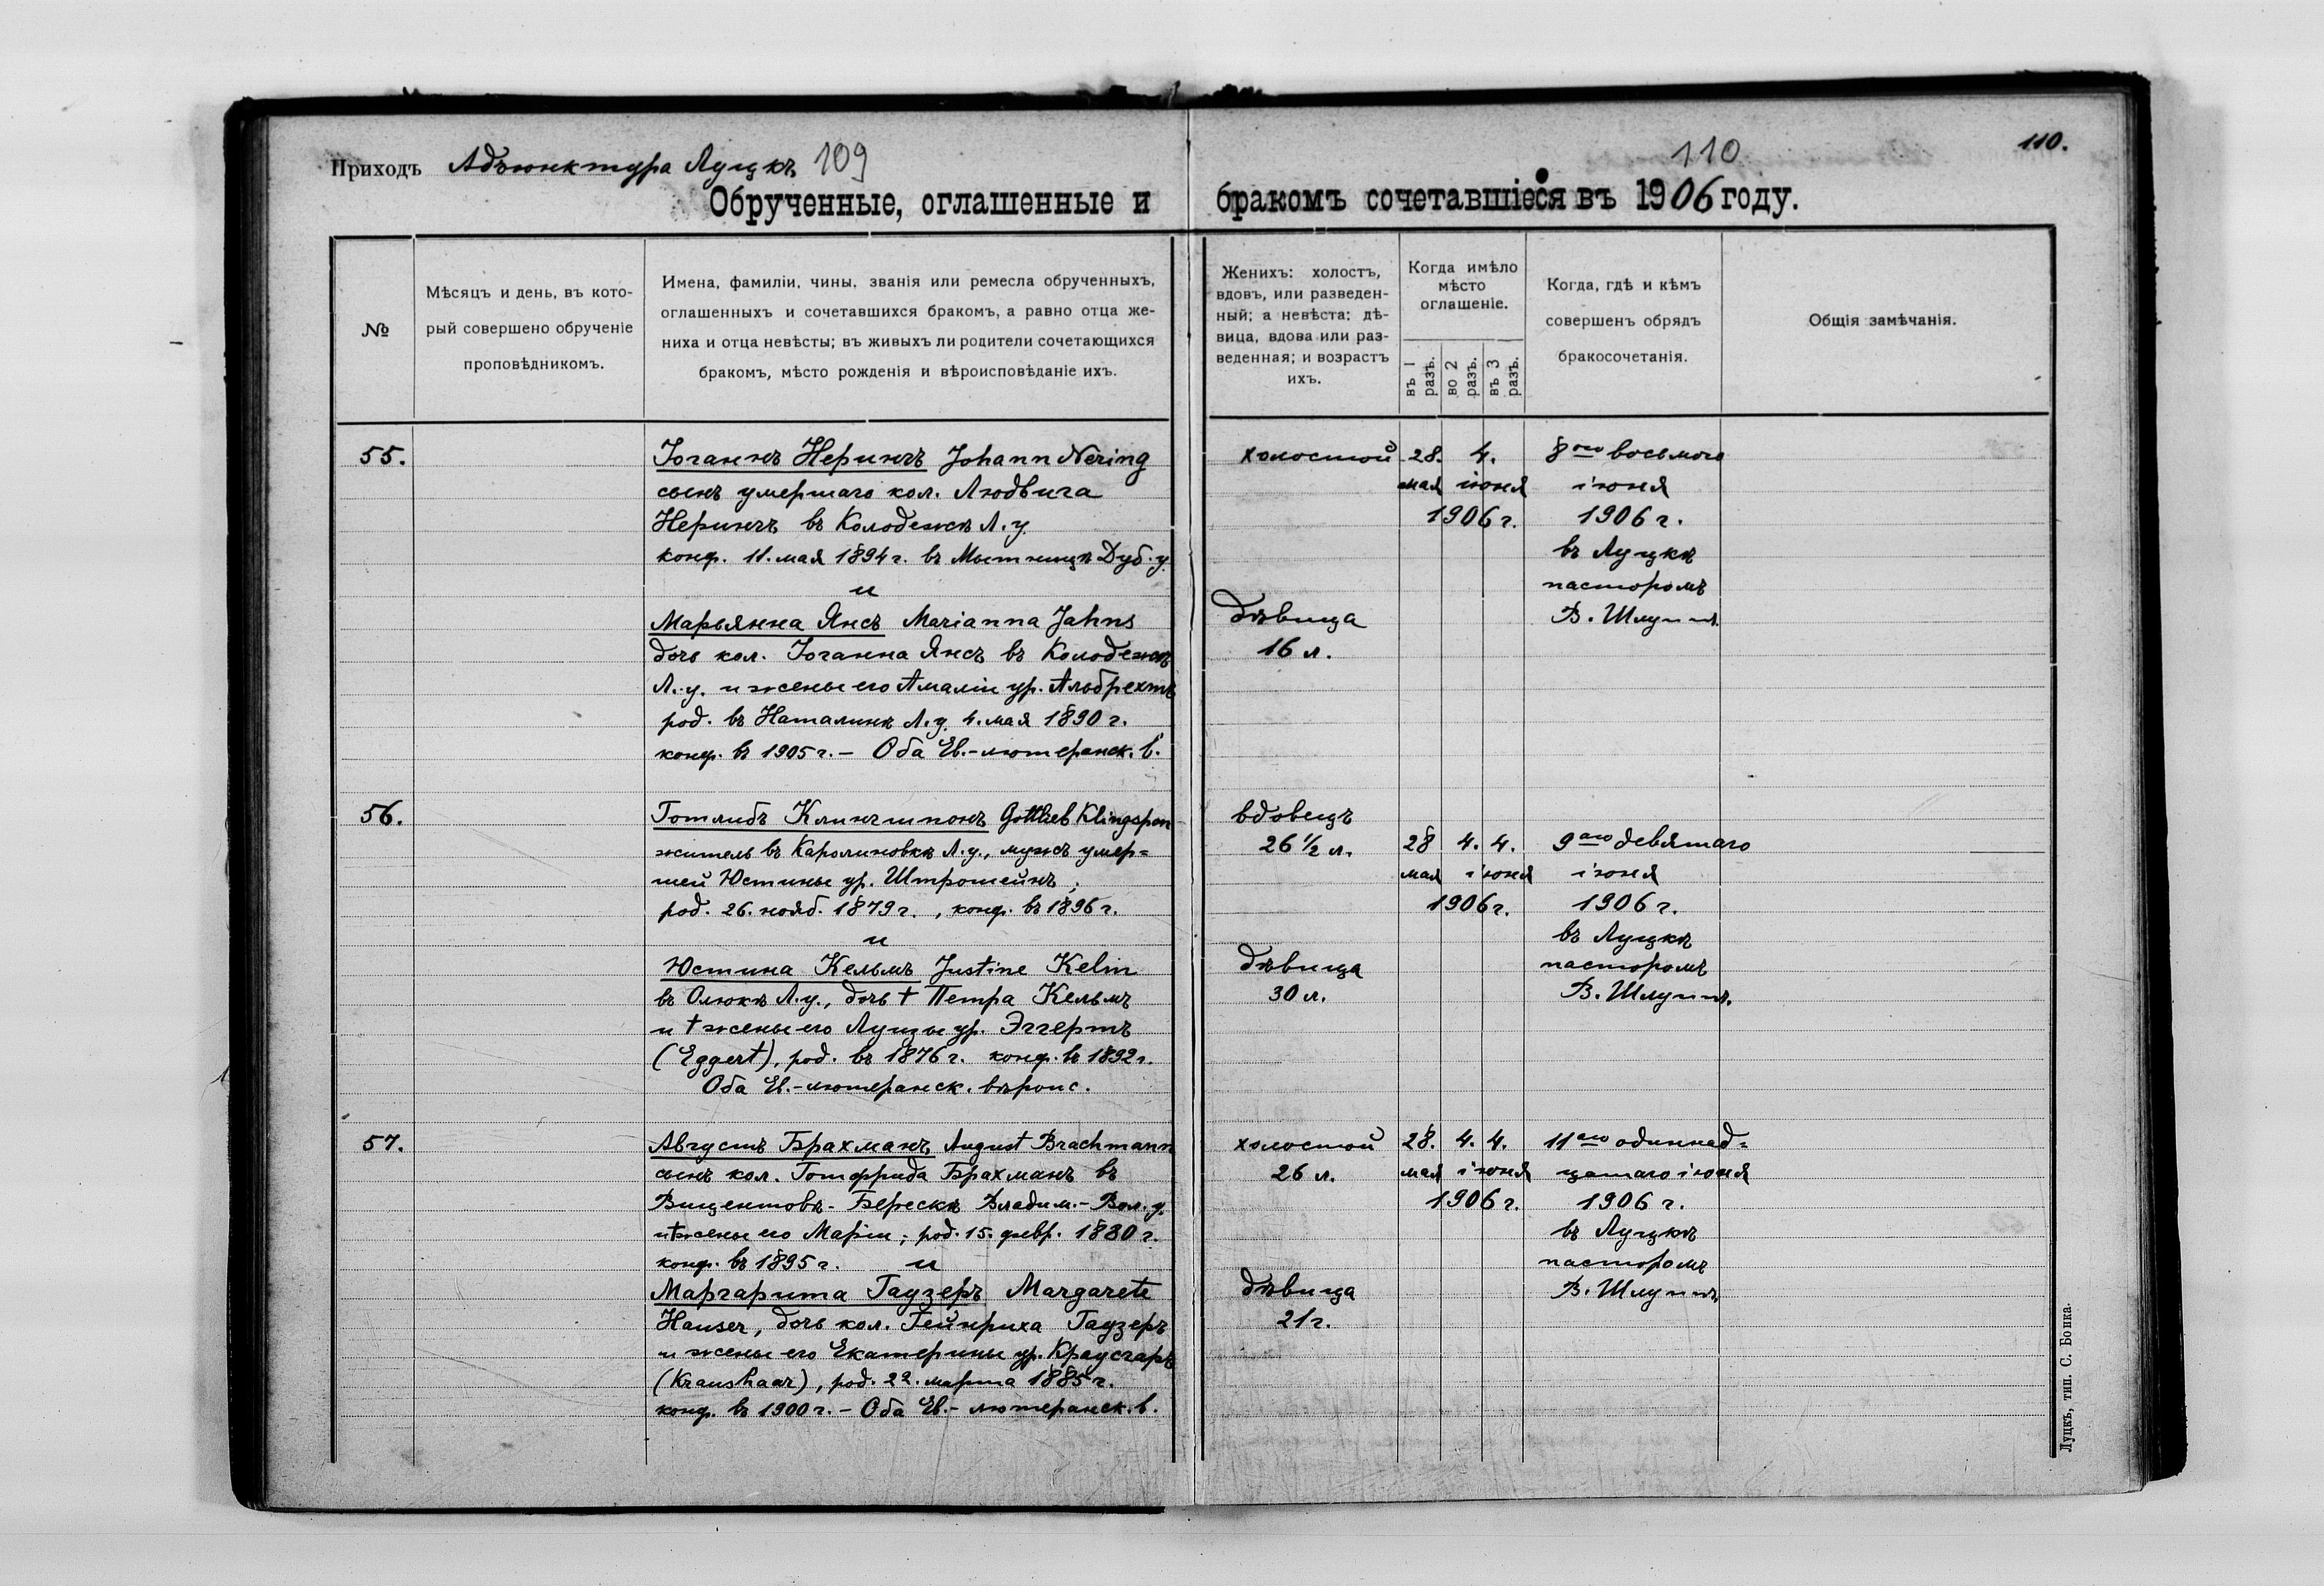 Приходъ Адъюнктура Луцкъ 109
Обрученные, оглашенные и
№
Мѣсяцъ и день, въ кото-
рый совершено обрученіе
проповѣдникомъ.
Имена, фамиліи, чины, званія или ремесла обрученныхъ,
оглашенныхъ и сочетавшихся бракомъ, а равно отца же-
ниха и отца невѣсты; въ живыхъ ли родители сочетающихся
бракомъ, мѣсто рожденія и вѣроисповѣданіе ихъ.
55.
Іоганнъ Нерингъ Johann Nering
сынъ умершаго кол. Людвига
Нерингъ въ Колодежѣ Л. у.
конф. 11. мая 1894 г. въ Мытницѣ Дуб. у.
и
Марьянна Янсъ Marianna Jahns
дочь кол. Іоганна Янсъ въ Колодежѣ
Л. у. и жены его Амаліи ур. Альбрехтъ
род. въ Наталинѣ Л. у. 4. мая 1890 г.
конф. въ 1905 г. – Оба Ев.-лютеранск. в.
56.
Готлибъ Клингшпонъ Gottlieb Klingspon
житель въ Каролиновкѣ Л. у., мужъ умер=
шей Юстины ур. Штрошейнъ;
род. 26. нояб. 1879 г., конф. въ 1896 г.
и
Юстина Кельмъ Justine Kelm
въ Олюкѣ Л. у., дочь † Петра Кельмъ
и † жены его Луизы ур. Эггертъ
(Eggert), род. въ 1876 г. конф. въ 1892 г.
Оба Ев.-лютеранск. вѣроис.
57.
Августъ Брахманъ August Brachmann
сынъ кол. Готфрида Брахманъ въ
Вицентовѣ-Берескѣ Владим.-Вол. у.
и † жены его Маріи; род. 15. февр. 1880 г.
конф. въ 1895 г. и
Маргарита Гаузеръ Margarete
Hauser, дочь кол. Гейнриха Гаузеръ
и жены его Екатерины ур. Краусгаръ
(Kraushaar), род. 22. марта 1885 г.
конф. въ 1900 г. – Оба Ев.-лютеранск. в.
110
110.
бракомъ сочетавшіеся въ 1906 году.
Женихъ: холостъ,
вдовъ, или разведен-
ный; а невѣста: дѣ-
вица, вдова или раз-
веденная; и возрастъ
ихъ.
Когда имѣло
мѣсто
оглашеніе.
въ 1 разъ.
во 2 разъ.
въ 3 разъ.
Когда, гдѣ и кѣмъ
совершенъ обрядъ
бракосочетанія.
Общія замѣчанія.
холостой 28. 4. 8ого восьмого
мая іюня іюня
1906 г. 1906 г.
въ Луцкѣ
пасторомъ
дѣвица В. Шлуппъ.
16 л.
вдовецъ
26 1/2 л. 28 4. 4. 9аго девятаго
мая іюня іюня
1906 г. 1906 г.
въ Луцкѣ
дѣвица пасторомъ
30 л. В. Шлуппъ.
холостой 28. 4. 4. 11аго одиннад=
26 л. мая іюня цатаго іюня
1906 г. 1906 г.
въ Луцкѣ
пасторомъ
дѣвица В. Шлуппъ.
21 г.
Луцкъ, тип. С. Бонка.